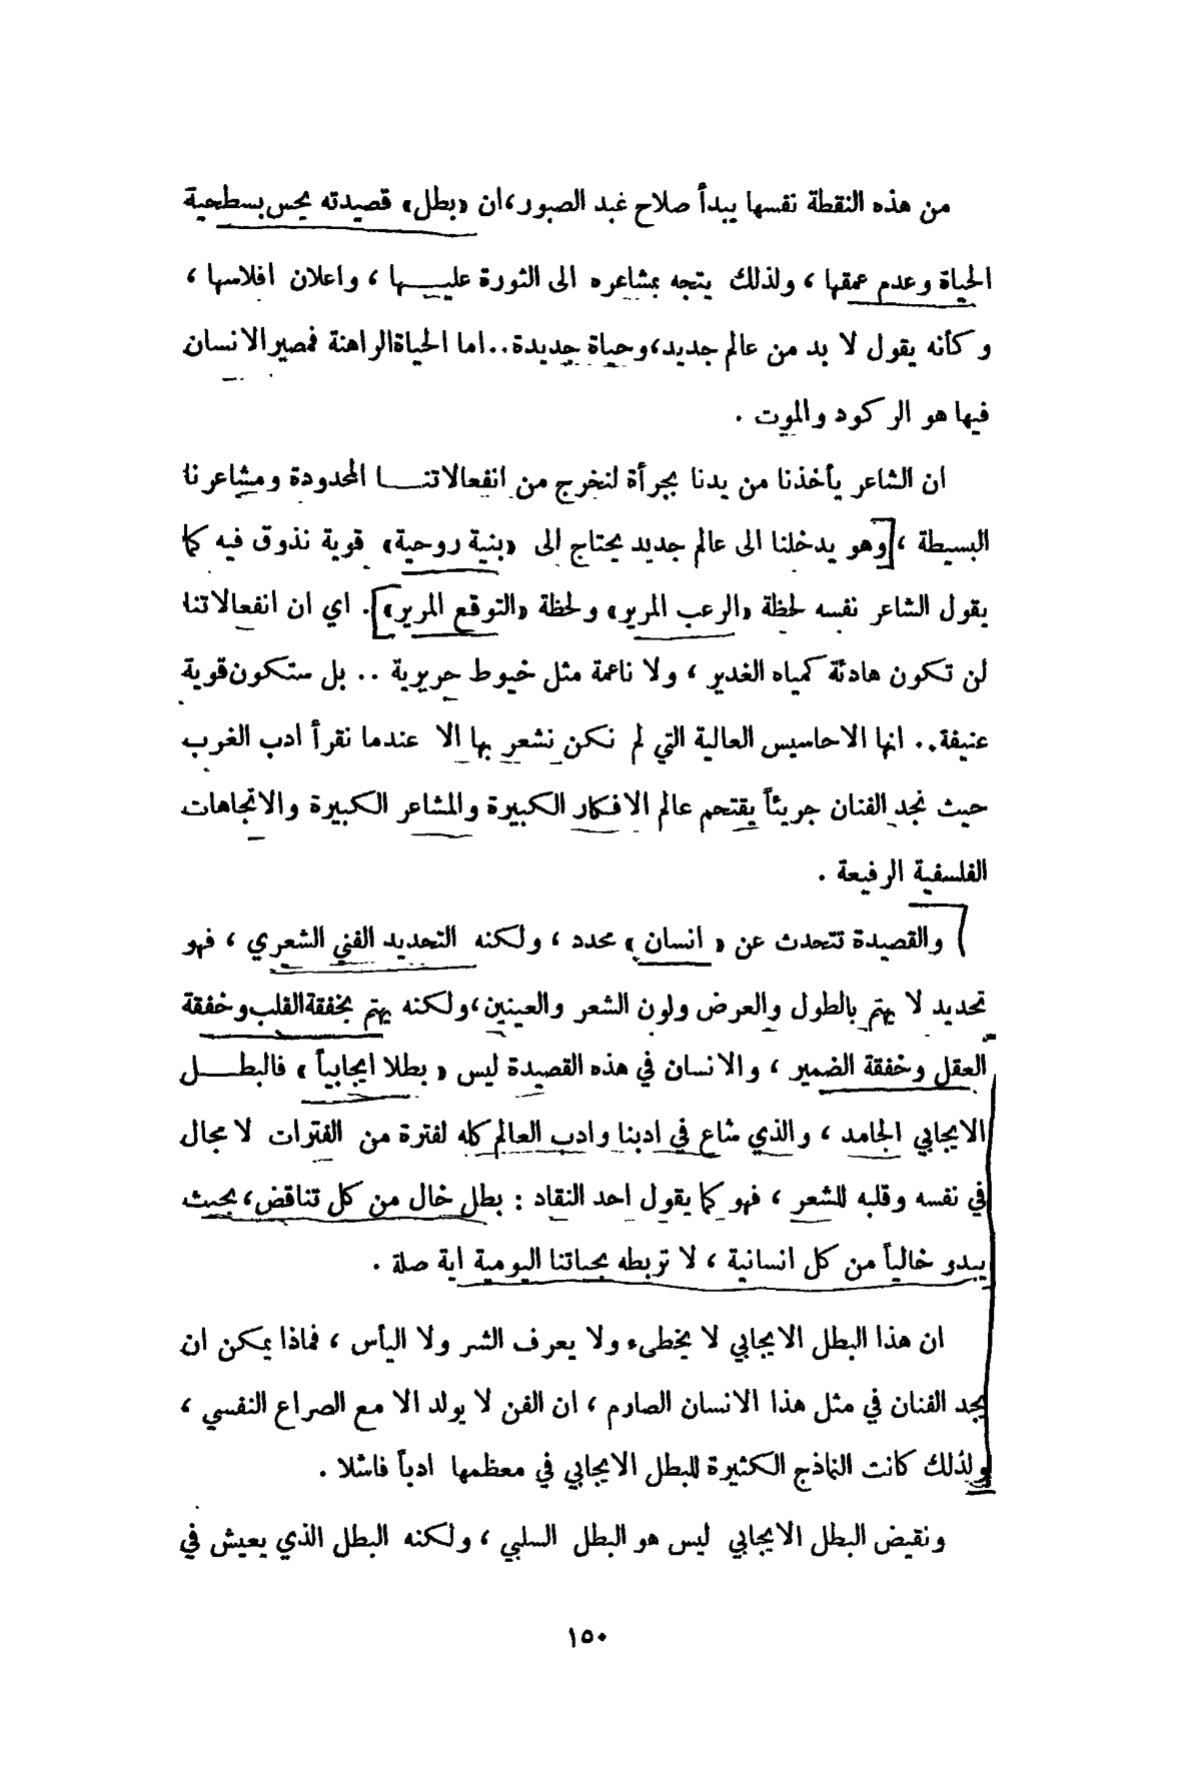 من هذه النقطة نفسها يبدأ صلاح عبد الصبور، ان «بطل» قصيدته يحس بسطحية
الحياة وعدم عمقها ، ولذلك يتجه بمشاعره الى الثورة عليـــها ، واعلان افلاسها ،
وكأنه يقول لا بد من عالم جديد، وحياة جديدة.. اما الحياة الراهنة فمصير الانسان
فيها هو الركود والموت .
ان الشاعر يأخذنا من يدنا بجرأة لنخرج من انفعالاتنـــا المحدودة ومشاعرنا
البسيطة ، [وهو يدخلنا الى عالم جديد يحتاج الى «بنية روحية» قوية نذوق فيه كما
يقول الشاعر نفسه لحظة «الرعب المرير» ولحظة «التوقع المرير»]. اي ان انفعالاتنا
لن تكون هادئة كمياه الغدير ، ولا ناعمة مثل خيوط حريرية .. بل ستكون قوية
عنيفة.. انها الاحاسيس العالية التي لم نكن نشعر بها الا عندما نقرأ ادب الغرب
حيث نجد الفنان جريئاً يقتحم عالم الافكار الكبيرة والمشاعر الكبيرة والاتجاهات
الفلسفية الرفيعة .
والقصيدة تتحدث عن « انسان » محدد ، ولكنه التحديد الفني الشعري ، فهو
تحديد لا يهتم بالطول والعرض ولون الشعر والعينين، ولكنه يهتم بخفقة القلب وخفقة
العقل وخفقة الضمير ، والانسان في هذه القصيدة ليس « بطلا ايجابياً » فالبطـــل
الايجابي الجامد ، والذي شاع في ادبنا وادب العالم كله لفترة من الفترات لا مجال
في نفسه وقلبه للشعر ، فهو كما يقول احد النقاد : بطل خال من كل تناقض، بحيث
يبدو خالياً من كل انسانية ، لا تربطه بحياتنا اليومية اية صلة .
ان هذا البطل الايجابي لا يخطىء ولا يعرف الشر ولا اليأس ، فماذا يمكن ان
يجد الفنان في مثل هذا الانسان الصارم ، ان الفن لا يولد الا مع الصراع النفسي ،
ولذلك كانت النماذج الكثيرة للبطل الايجابي في معظمها ادباً فاشلا .
ونقيض البطل الايجابي ليس هو البطل السلبي ، ولكنه البطل الذي يعيش في
١٥٠